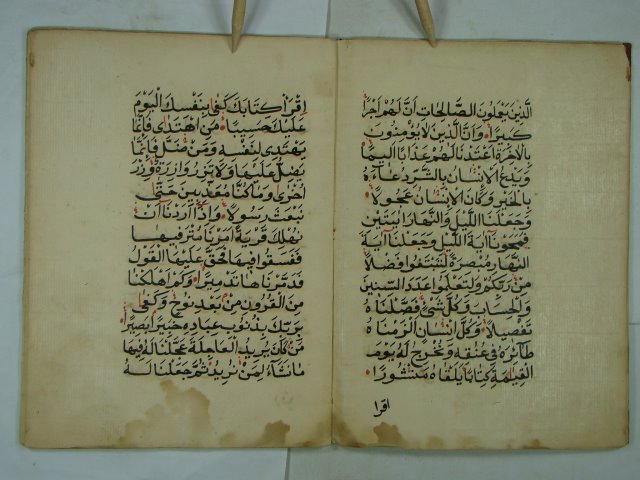 الَّذِينَ يَعْمَلُونَ الصَّالِحَاتِ اَنَّ لَهُمْ اَجْرًا
كَبِيرًا وَاَنَّ الَّذِينَ لَا يُؤْمِنُونَ
بِالْاٰخِرَةِ اَعْتَدْنَا لَهُمْ عَذَابًا اَلِيمًا
وَيَدْعُ الْاِنْسَانُ بِالشَّرِّ دُعَاءَهُ
بِالْخَيْرِ وَكَانَ الْاِنْسَانُ عَجُولًا
وَجَعَلْنَا اللَّيْلَ وَالنَّهَارَ اٰيَتَيْنِ
فَمَحَوْنَا اٰيَةَ اللَّيْلِ وَجَعَلْنَا اٰيَةَ
النَّهَارِ مُبْصِرَةً لِتَبْتَغُوا فَضْلًا
مِنْ رَبِّكُمْ وَلِتَعْلَمُوا عَدَدَ السِّنِينَ
وَالْحِسَابَ وَكُلَّ شَيْءٍ فَصَّلْنَاهُ
تَفْصِيلًا وَكُلَّ اِنْسَانٍ اَلْزَمْنَاهُ
طَآئِرَهُ فِي عُنُقِهِ وَنُخْرِجُ لَهُ يَوْمَ
الْقِيٰمَةِ كِتَابًا يَلْقَاهُ مَنْشُورًا
اقرا
اِقْرَأْ كِتَابَكَ كَفٰى بِنَفْسِكَ الْيَوْمَ
عَلَيْكَ حَسِيبًا مَنِ اهْتَدٰى فَاِنَّمَا
يَهْتَدِي لِنَفْسِهِ وَمَنْ ضَلَّ فَاِنَّمَا
يَضِلُّ عَلَيْهَا وَلَا تَزِرُ وَازِرَةٌ وِزْرَ
اُخْرٰى وَمَا كُنَّا مُعَذِّبِينَ حَتّٰى
نَبْعَثَ رَسُولًا وَاِذَا اَرَدْنَا اَنْ
نُهْلِكَ قَرْيَةً اَمَرْنَا مُتْرَفِيهَا
فَفَسَقُوا فِيهَا فَحَقَّ عَلَيْهَا الْقَوْلُ
فَدَمَّرْنَاهَا تَدْمِيرًا وَكَمْ اَهْلَكْنَا
مِنَ الْقُرُونِ مِنْ بَعْدِ نُوحٍ وَكَفٰى
بِرَبِّكَ بِذُنُوبِ عِبَادِهِ خَبِيرًا بَصِيرًا
مَنْ كَانَ يُرِيدُ الْعَاجِلَةَ عَجَّلْنَا لَهُ فِيهَا
مَا نَشَآءُ لِمَنْ نُرِيدُ ثُمَّ جَعَلْنَا لَهُ